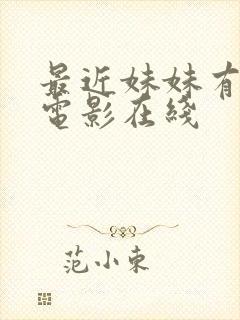 最近妹妹有
電影在綫
范小東